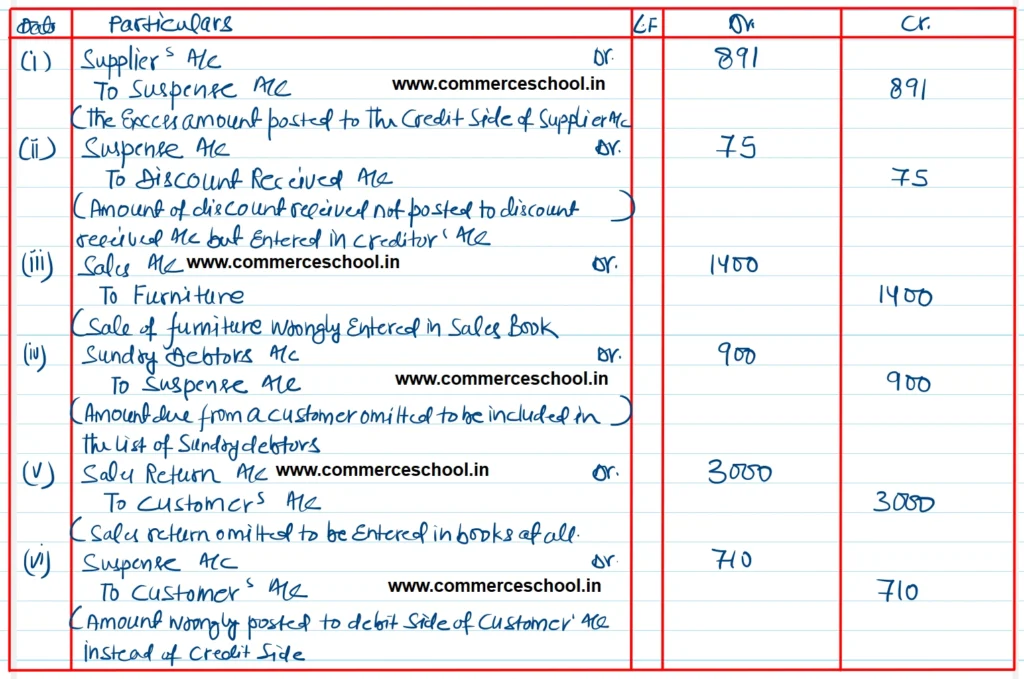 Date Particulars LF Dr. Cr.
(i) Supplier's A/c Dr. 891
To Suspense A/c www.commerceschool.in 891
(The Excess amount posted to the Credit Side of Supplier A/c
(ii) Suspense A/c Dr. 75
To Discount Received A/c 75
(Amount of discount received not posted to discount)
received A/c but Entered in creditor' A/c
(iii) Sales A/c www.commerceschool.in Dr. 1400
To Furniture 1400
(Sale of furniture wrongly Entered in Sales Book
(iv) Sundry Debtors A/c Dr. 900
To Suspense A/c www.commerceschool.in 900
(Amount due from a customer omitted to be included in)
the list of Sundry debtors
(v) Sales Return A/c www.commerceschool.in Dr. 3000
To Customers A/c 3000
(Sales return omitted to be Entered in books at all.
(vi) Suspense A/c Dr. 710
To Customer's A/c www.commerceschool.in 710
(Amount wrongly posted to debit Side of Customer' A/c
instead of Credit Side